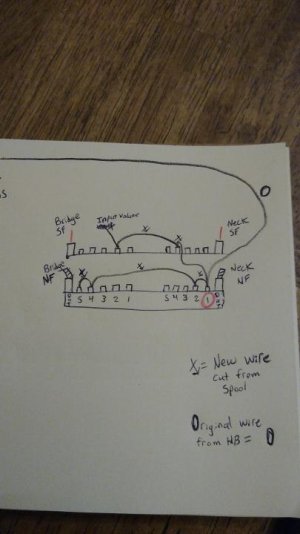 s
O
Bridge
SF
Input
X
X
Neck
SF
Bridge
NF
X
X
Neck
NF
5 4 3 2 1
5 4 3 2 1
X = New wire
cut from
spool
Original wire
from HB = O